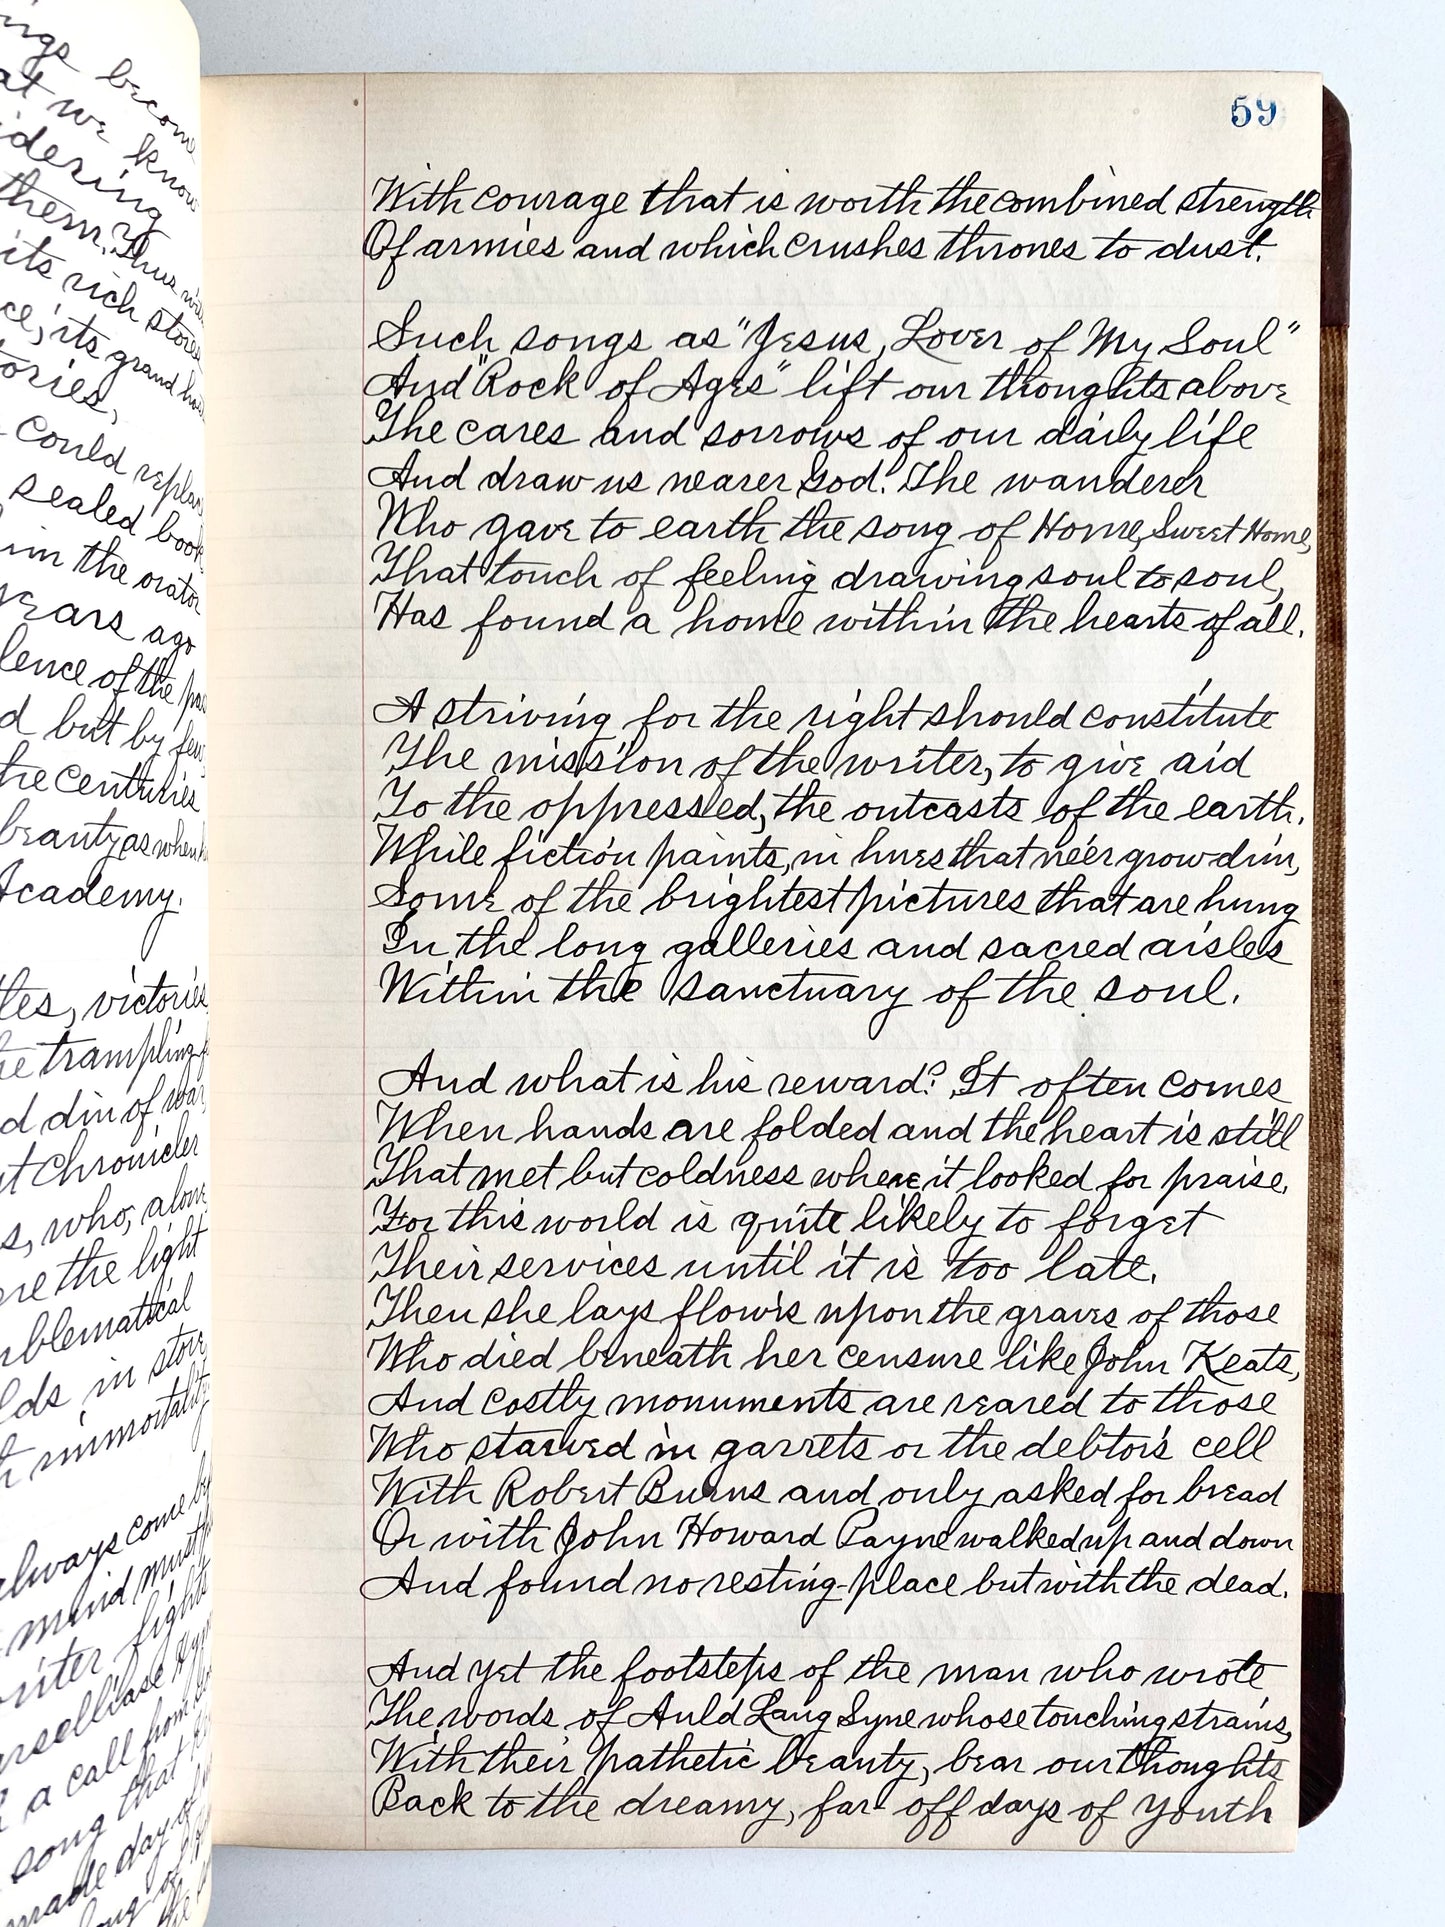 ings become
at we know
idering
them. Thus
its rich stores
ce, its grand
tories,
could replace
sealed book
him the orator
years ago
lence of the
d but by few
he centuries
beauty as when
Academy.
tles, victories
he trampling
d din of war,
t chronicler
s, who, alone
ere the light
mblematical
lds in store
h immortality
always come by
mind must
writer fights
arselliase Hymn
a call from
song that
made day of
long of
the
59
With courage that is worth the combined strength
Of armies and which crushes thrones to dust.
Such songs as "Jesus, Lover of My Soul"
And "Rock of Ages" lift our thoughts above
The cares and sorrows of our daily life
And draw us nearer God. The wanderer
Who gave to earth the song of Home, Sweet Home,
That touch of feeling drawing soul to soul,
Has found a home within the hearts of all.
A striving for the right should constitute
The mission of the writer, to give aid
To the oppressed, the outcasts of the earth.
While fiction paints, in hues that ne'er grow dim,
Some of the brightest pictures that are hung
In the long galleries and sacred aisles
Within the sanctuary of the soul.
And what is his reward? It often comes
When hands are folded and the heart is still
That met but coldness where it looked for praise.
For this world is quite likely to forget
Their services until it is too late.
Then she lays flow'rs upon the graves of those
Who died beneath her censure like John Keats,
And costly monuments are reared to those
Who starved in garrets or the debtor's cell
With Robert Burns and only asked for bread
Or with John Howard Payne walked up and down
And found no resting-place but with the dead.
And yet the footsteps of the man who wrote
The words of Auld Lang Syne whose touching strains,
With their pathetic beauty, bear our thoughts
Back to the dreamy, far-off days of youth